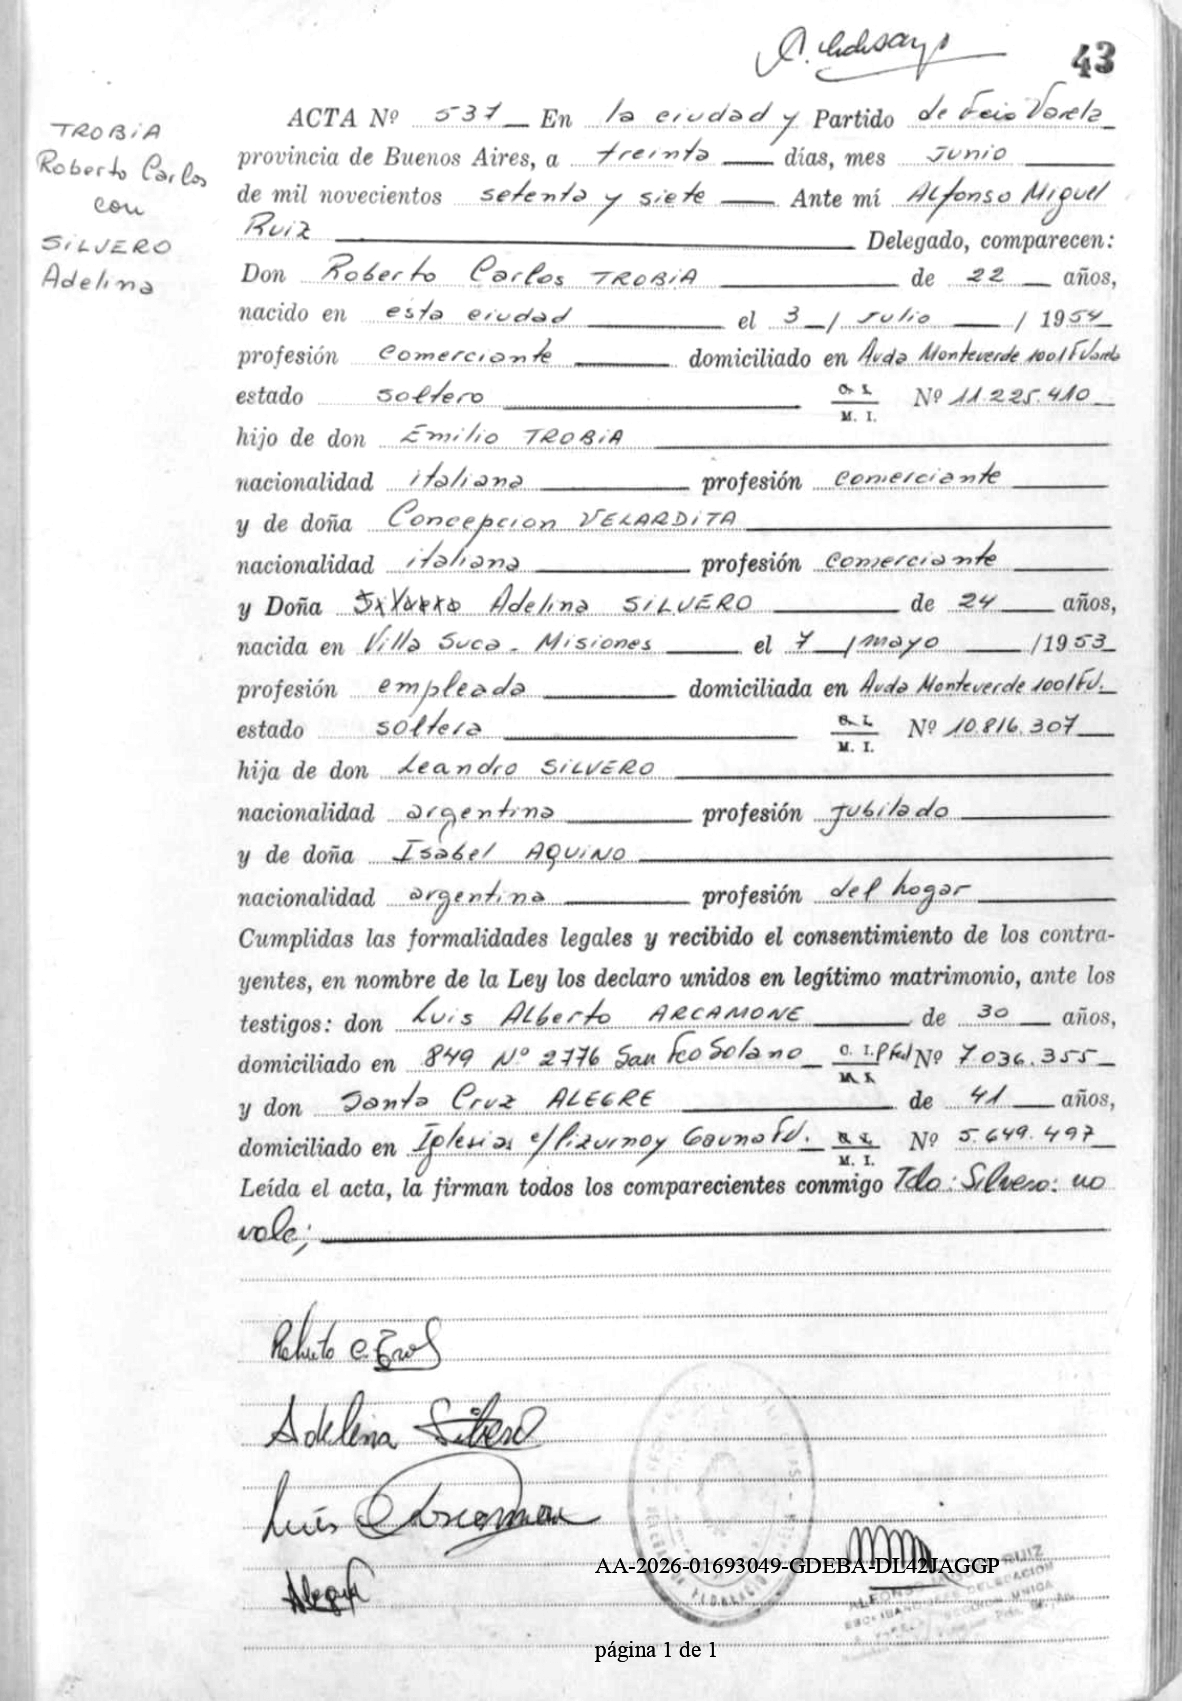 43
TROBIA
Roberto Carlos
con
SILVERO
Adelina
ACTA Nº 537 En la ciudad y Partido de Fcio Varela
provincia de Buenos Aires, a treinta días, mes Junio
de mil novecientos setenta y siete Ante mí Alfonso Miguel
Ruiz Delegado, comparecen:
Don Roberto Carlos TROBIA de 22 años,
nacido en esta ciudad el 3 / Julio / 1954
profesión comerciante domiciliado en Avda Monteverde 1001 F Varela
estado soltero M. I. Nº 11.225.410
hijo de don Emilio TROBIA
nacionalidad italiana profesión comerciante
y de doña Concepcion VELARDITA
nacionalidad italiana profesión comerciante
y Doña Adelina SILVERO de 24 años,
nacida en Villa Suca - Misiones el 7 / mayo /1953
profesión empleada domiciliada en Avda Monteverde 1001 F V.
estado soltera M. I. Nº 10.816.307
hija de don Leandro SILVERO
nacionalidad argentina profesión jubilado
y de doña Isabel AQUINO
nacionalidad argentina profesión del hogar
Cumplidas las formalidades legales y recibido el consentimiento de los contra-
yentes, en nombre de la Ley los declaro unidos en legítimo matrimonio, ante los
testigos: don Luis Alberto ARCAMONE de 30 años,
domiciliado en 849 Nº 2776 San Fco Solano C. I. P Fed Nº 7.036.355
y don Santa Cruz ALEGRE de 41 años,
domiciliado en Iglesias e/ Pizurno y Gaona F V. M. I. Nº 5.649.497
Leída el acta, la firman todos los comparecientes conmigo Tdo: Silvero: no
vale;
Adelina Silvero
Luis Arcamone
Alegre
AA-2026-01693049-GDEBA-DL42JAGGP
página 1 de 1